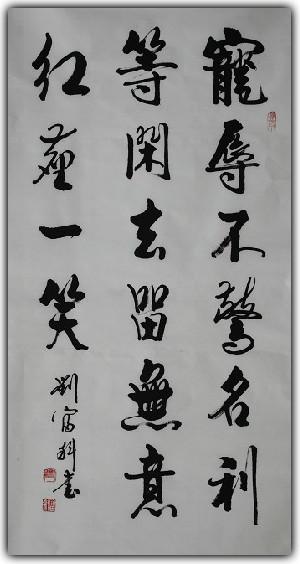 寵辱不驚名利
等閑去留無意
紅塵一笑
劉富科書